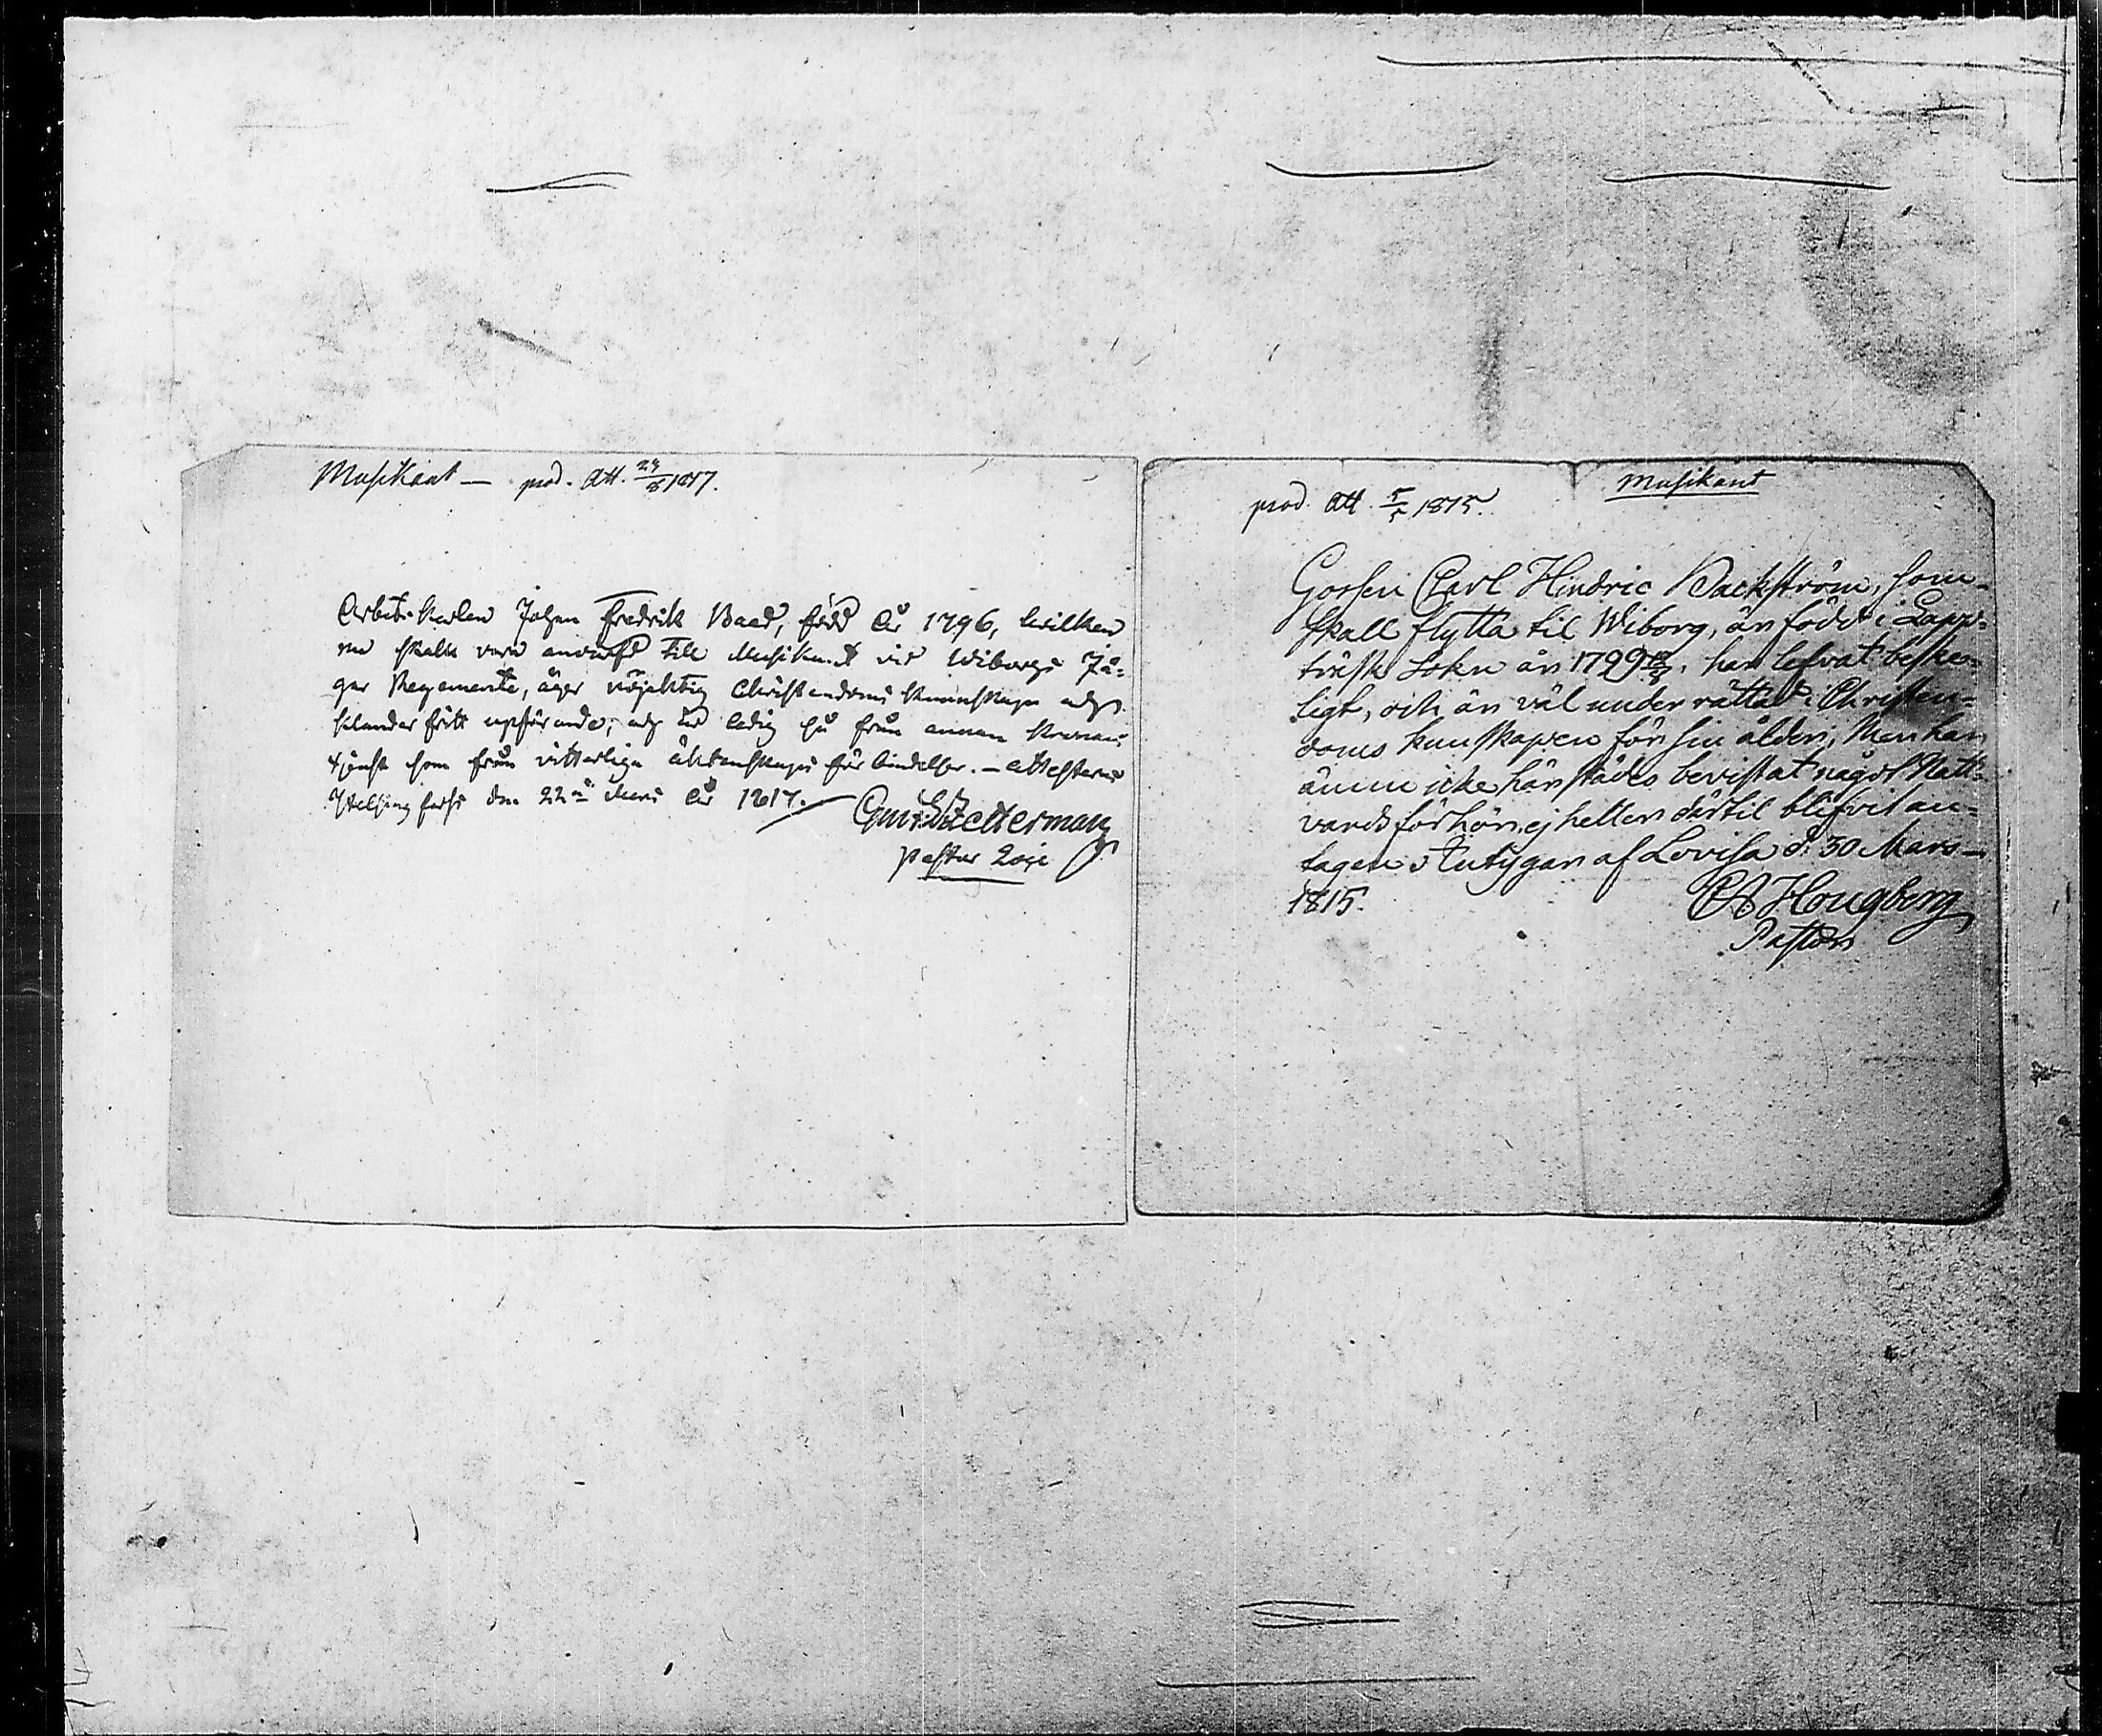 Musikant — prod. Att. 24/8 1817.
Arbets Karlen Johan Fredrik Baad, född år 1796, hvilken
nu skall vara anvärfd till Musikant vid Wiborgs Jä-
gar Regemente, äger nöjaktig Christendoms kunskap och
förande; och är ledig så från annan Krono-
tjenst som från vitterliga äktenskaps förbindelser. — Attesteras
Helsingfors den 22 år 1817.
Wetterman
Pastor Loci
Musikant
prod. Att. 5/5 1815.
Gossen Carl Hindric Backström, som
skall flytta til Wiborg, är född i Lapp-
träsk Sokn år 1799 har lefvat beske-
ligt, och är väl underrättad i Christen-
doms kunskapen för sin ålder; Men har
ännu icke härstädes bevistat något Natt-
vardsförhör, ej heller därtil blifvit an-
tagen. Intygar af Lovisa d. 30 Mars —
1815.
Hougberg
Pastor